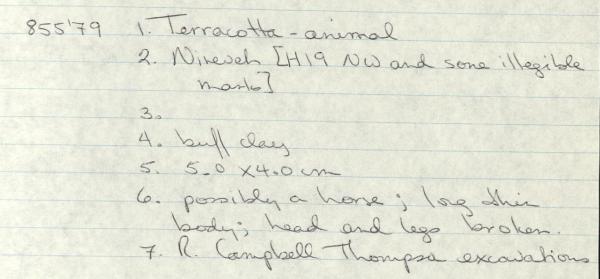 855'79 1. Terracotta - animal
2. Nineveh [H19 NW and some illegible
marks]
3.
4. buff clay
5. 5.0 x 4.0 cm
6. possibly a horse; long thin
body; head and legs broken.
7. R. Campbell Thompson excavations